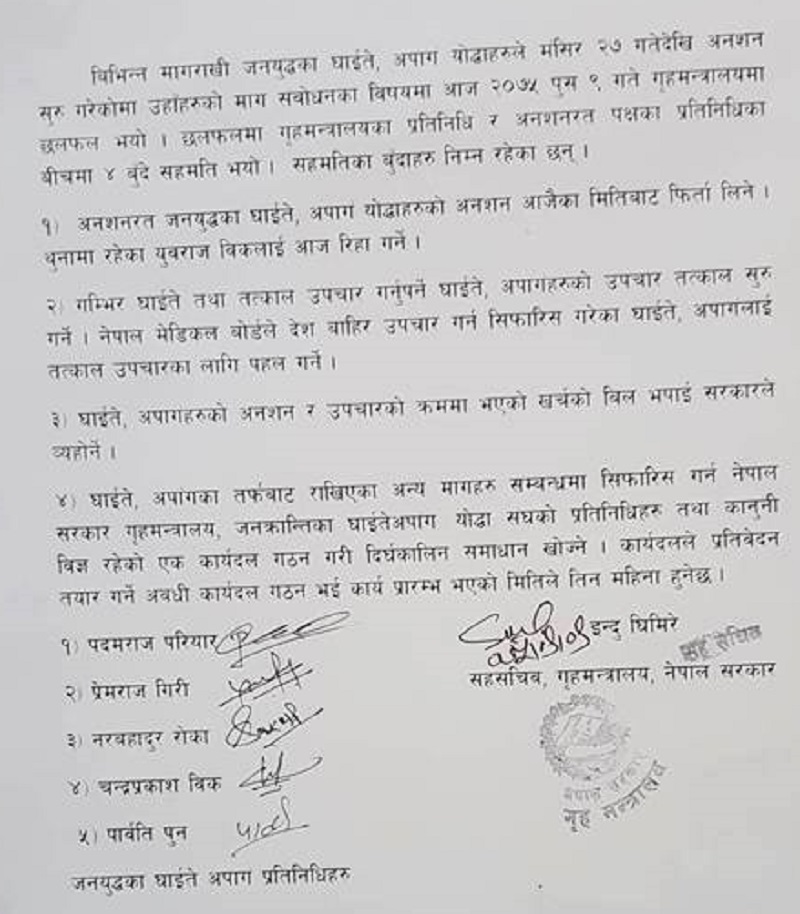 विभिन्न मागराखी जनयुद्धका घाईते, अपाग योद्धाहरुले मंसिर २७ गतेदेखि अनशन
सुरु गरेकोमा उहाँहरुको माग सबोधनका विषयमा आज २०७५ पुस ९ गते गृहमन्त्रालयमा
छलफल भयो । छलफलमा गृहमन्त्रालयका प्रतिनिधि र अनशनरत पक्षका प्रतिनिधिका
बीचमा ४ बुदे सहमति भयो । सहमतिका बुदाहरु निम्न रहेका छन् ।
१) अनशनरत जनयुद्धका घाईते, अपाग योद्धाहरुको अनशन आजैका मितिबाट फिर्ता लिने ।
थुनामा रहेका युवराज विकलाई आज रिहा गर्ने ।
२) गम्भिर घाईते तथा तत्काल उपचार गर्नुपर्ने घाईते, अपागहरुको उपचार तत्काल सुरु
गर्ने । नेपाल मेडिकल बोर्डले देश बाहिर उपचार गर्न सिफारिस गरेका घाईते, अपागलाई
तत्काल उपचारका लागि पहल गर्ने ।
३) घाईते, अपागहरुको अनशन र उपचारको क्रममा भएको खर्चको बिल भपाई सरकारले
व्यहोर्ने ।
४) घाईते, अपांगका तर्फबाट राखिएका अन्य मागहरु सम्बन्धमा सिफारिस गर्न नेपाल
सरकार गृहमन्त्रालय, जनक्रान्तिका घाईतेअपाग योद्धा सघको प्रतिनिधिहरु तथा कानुनी
विज्ञ रहेको एक कार्यदल गठन गरी दिर्घकालिन समाधान खोज्ने । कार्यदलले प्रतिवेदन
तयार गर्ने अवधी कार्यदल गठन भई कार्य प्रारम्भ भएको मितिले तिन महिना हुनेछ ।
१) पदमराज परियार
२) प्रेमराज गिरी
३) नरबहादुर रोका
४) चन्द्रप्रकाश विक
५) पार्वति पुन
जनयुद्धका घाईते अपाग प्रतिनिधिहरु
इन्दु घिमिरे
सह सचिव
सहसचिब, गृहमन्त्रालय, नेपाल सरकार
नेपाल सरकार
गृह मन्त्रालय